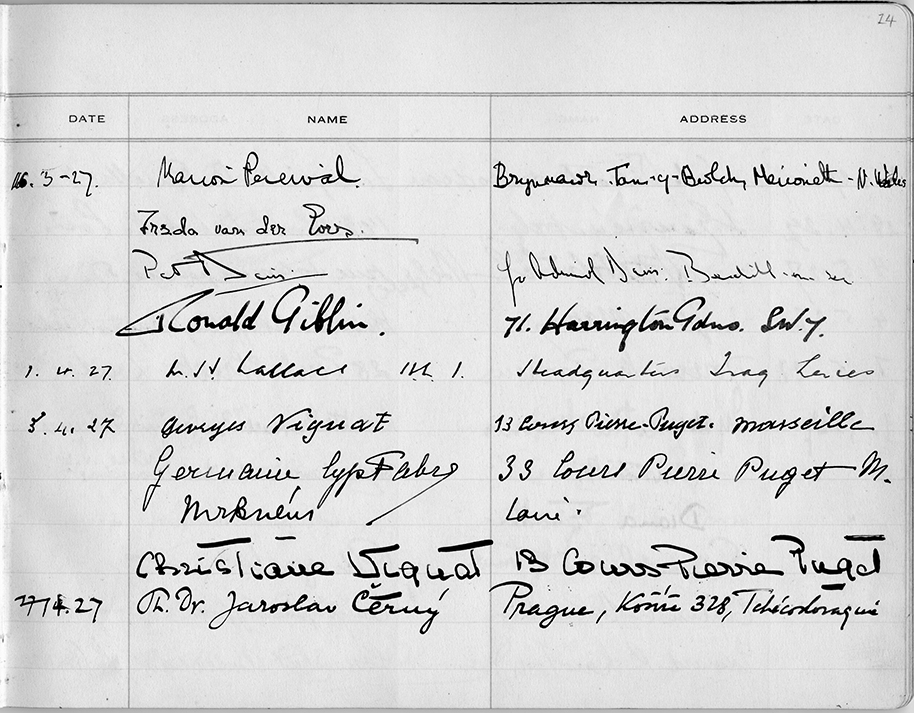 24
DATE NAME ADDRESS
16. 3-27. Marion Percival. Brynmawr. Tan-y-Bwlch, Merioneth - N. Wales
Freda van der
Ronald Giblin. 71. Harrington Gdns. S.W.7.
1. 4. 27. Wallace Headquarters Iraq Levies
3. 4. 27 Georges Vignat 13 Cours Pierre-Puget. Marseille
Germaine 33 Cours Pierre Puget M.
Christiane Vignat 13 Cours Pierre Puget
27/4.27 Ph. Dr. Jaroslav Černý Prague, Košíře 328, Tchécoslovaquie